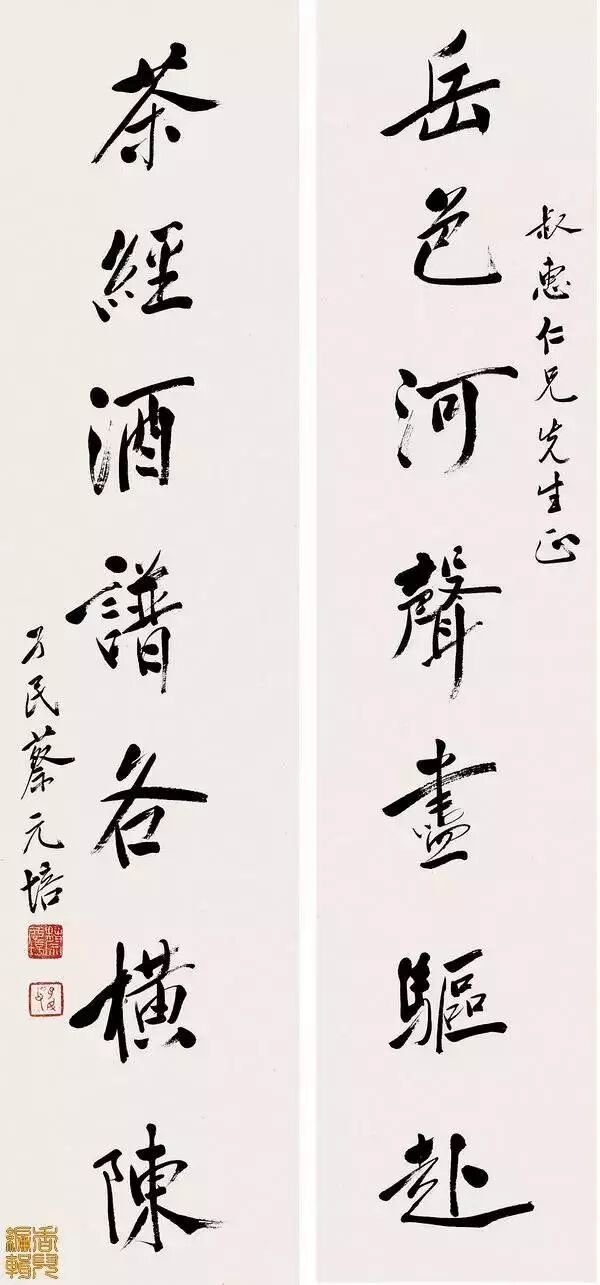 叔惠仁兄先生正
岳色河聲盡驅赴
茶經酒譜各橫陳
孑民蔡元培
香門編輯